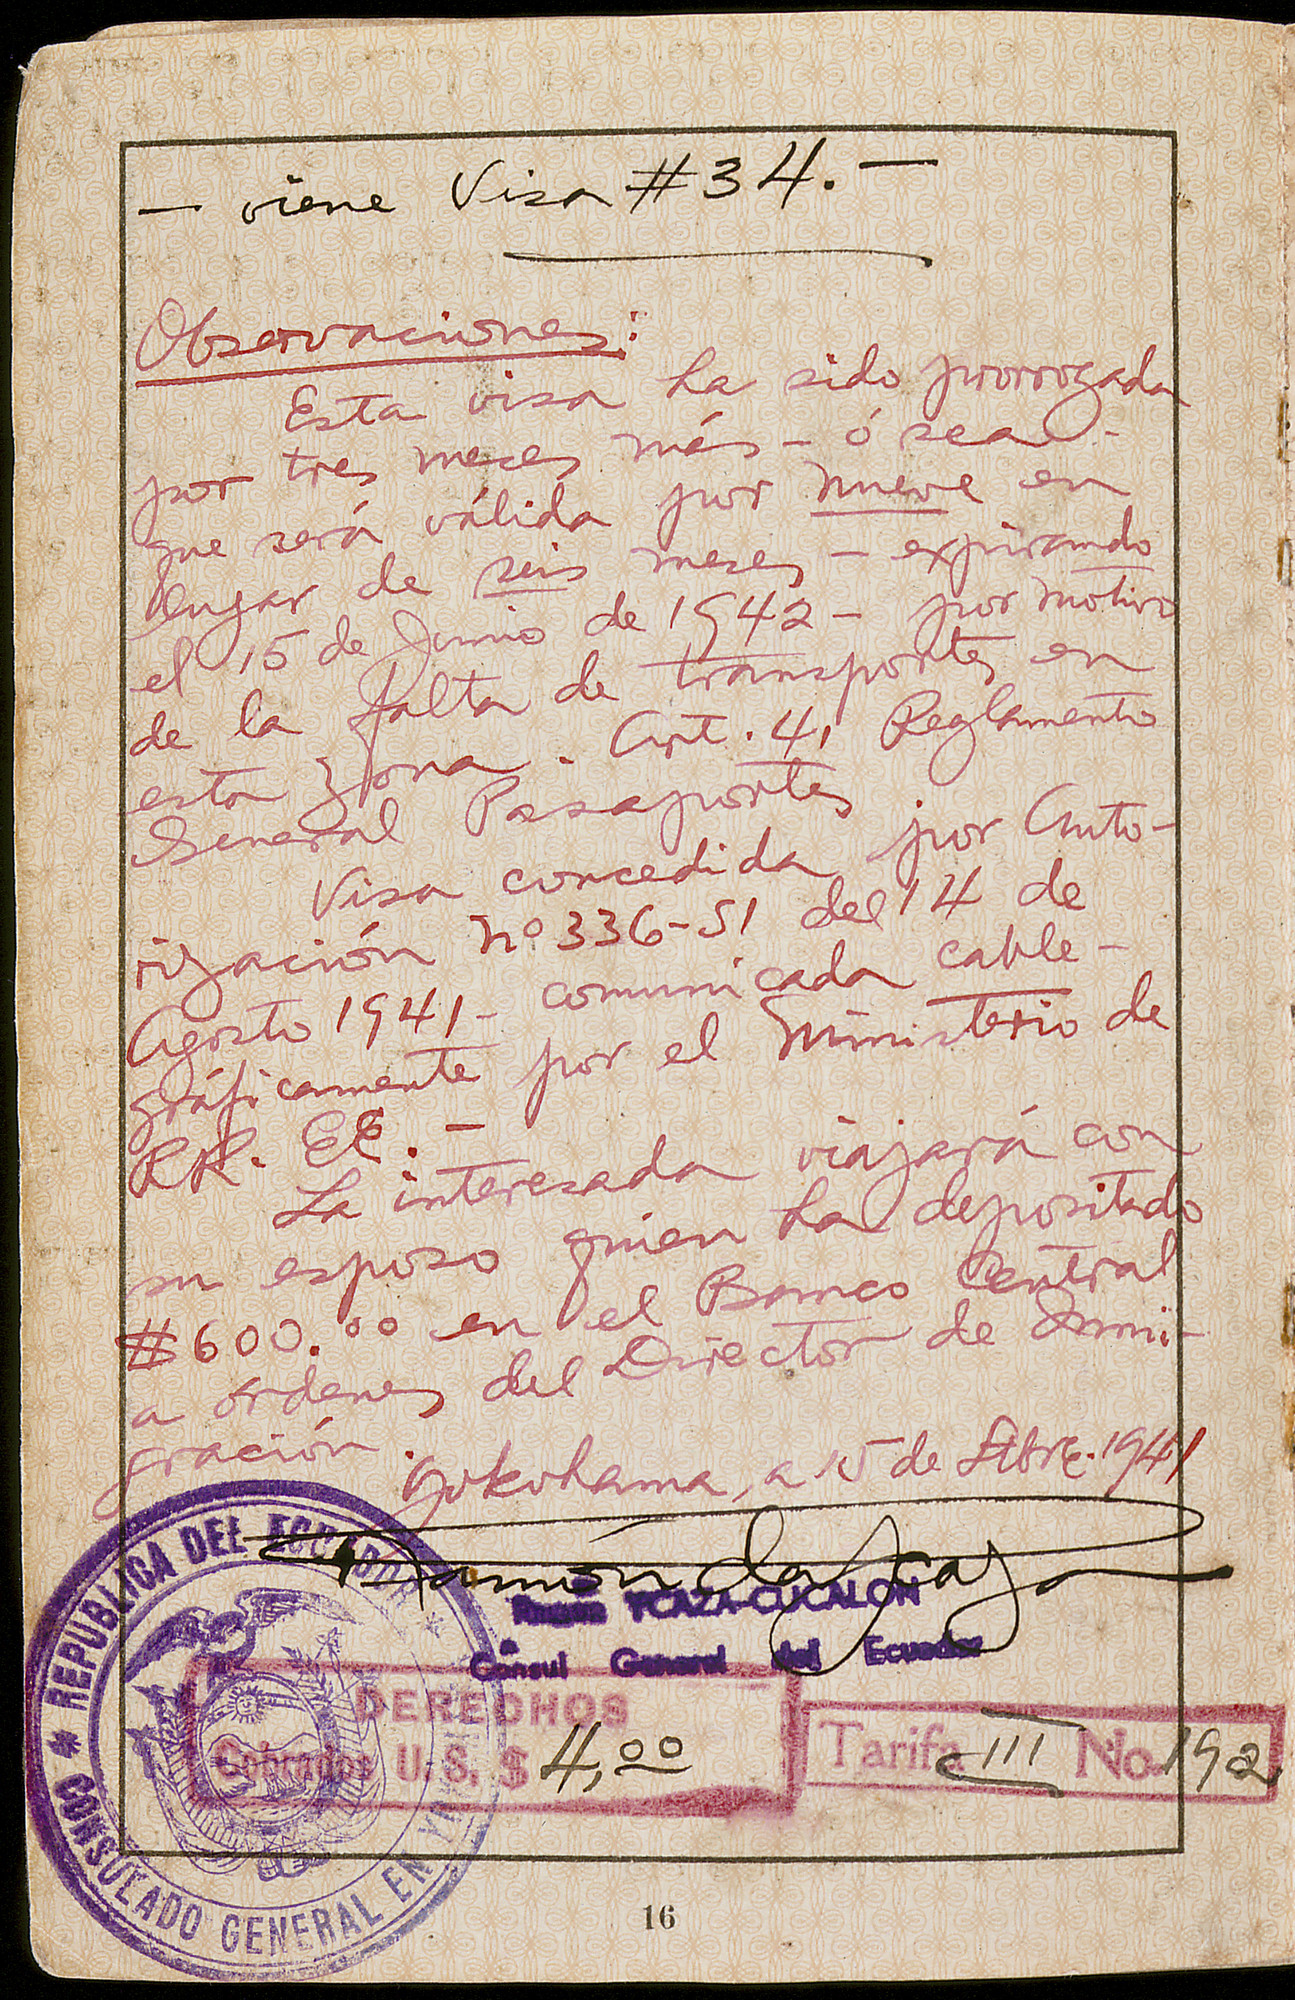 — viene Visa #34. —
Observaciones:
Esta visa ha sido prorrogada
por tres meses más - ó sea -
que será válida por nueve en
lugar de seis meses - expirando
el 15 de Junio de 1942 - por motivo
de la falta de transportes en
esta zona. Art. 41 Reglamento
General Pasaportes
Visa concedida por Auto-
rización No 336-51 del 14 de
Agosto 1941 - comunicada cable-
gráficamente por el Ministerio de
RR. EE. -
La interesada viajará con
su esposo quien ha depositado
$600.00 en el Banco Central
a órdenes del Director de Inmi-
gración.
Yokohama, a 15 de Stbre. 1941
Ramón de Ycaza
Ramon YCAZA-CUCALON
Consul General del Ecuador
* REPUBLICA DEL ECUADOR *
CONSULADO GENERAL EN
DERECHOS
Cobrados U. S. $ 4,00
Tarifa III No. 192
16